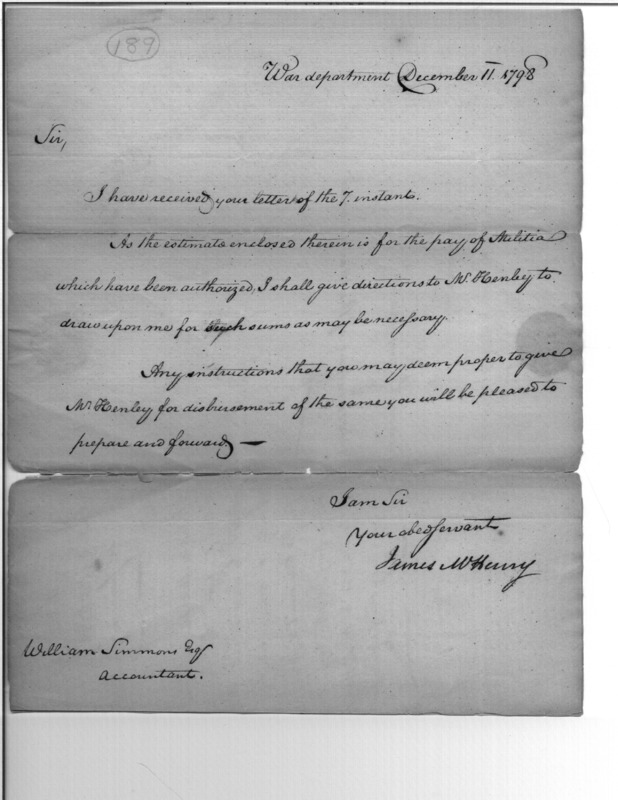 189
War department December 11. 1798
Sir,
I have received your letter of the 7. instant.
As the estimate enclosed therein is for the pay of Militia
which have been authorized, I shall give directions to Mr. Henley to
draw upon me for such sums as may be necessary.
Any instructions that you may deem proper to give
Mr. Henley for disbursement of the same you will be pleased to
prepare and forward —
I am Sir
Your obed servant
James McHenry
William Simmons Esq
Accountant.